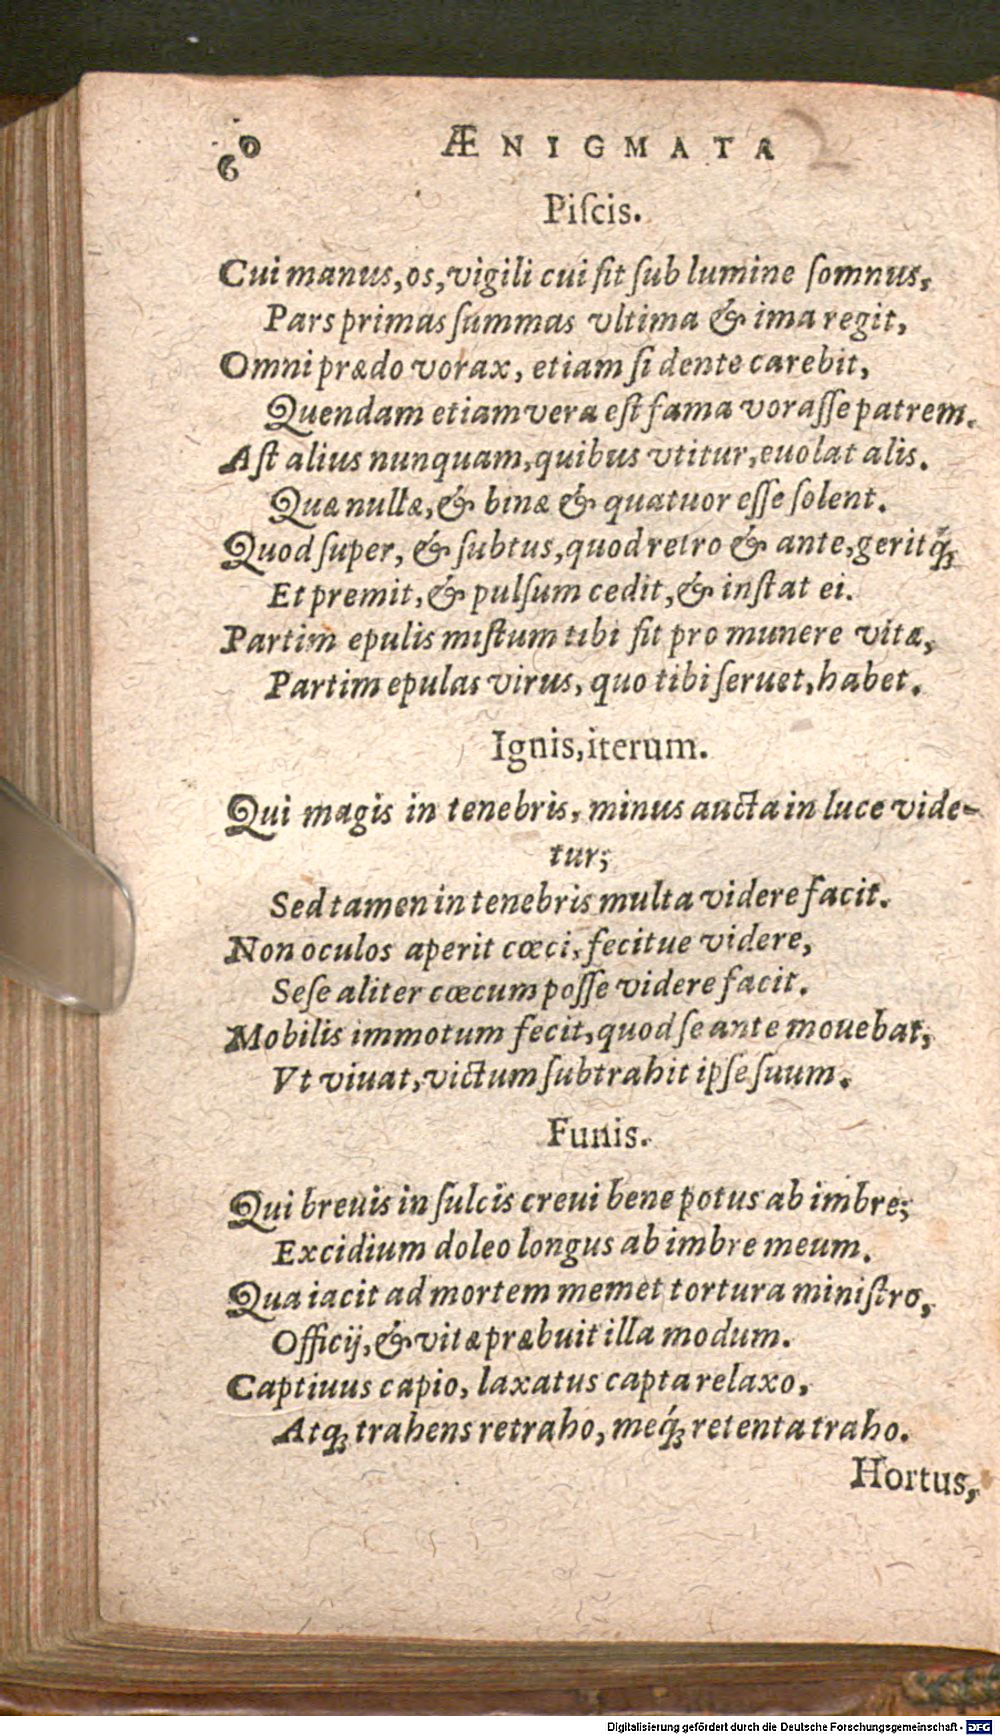 60 ÆNIGMATA
Piſcis.
Cui manus, os, vigili cui ſit ſub lumine ſomnus,
Pars primas ſummas vltima & ima regit,
Omni prædo vorax, etiam ſi dente carebit,
Quendam etiam vera eſt fama voraſſe patrem.
Aſt alius nunquam, quibus vtitur, euolat alis.
Quæ nullæ, & binæ & quatuor eſſe ſolent.
Quod ſuper, & ſubtus, quod retro & ante, geritq́;
Et premit, & pulſum cedit, & inſtat ei.
Partim epulis miſtum tibi ſit pro munere vitæ,
Partim epulas virus, quo tibi ſeruet, habet.
Ignis, iterum.
Qui magis in tenebris, minus aucta in luce vide-
tur;
Sed tamen in tenebris multa videre facit.
Non oculos aperit cœci, fecitue videre,
Seſe aliter cœcum poſſe videre facit.
Mobilis immotum fecit, quod ſe ante mouebat,
Vt viuat, victum ſubtrahit ipſe ſuum.
Funis.
Qui breuis in ſulcis creui bene potus ab imbre;
Excidium doleo longus ab imbre meum.
Qua iacit ad mortem memet tortura miniſtro,
Officij, & vitæ præbuit illa modum.
Captiuus capio, laxatus capta relaxo,
Atq; trahens retraho, meq́; retenta traho.
Hortus,
Digitalisierung gefördert durch die Deutsche Forschungsgemeinschaft - DFG